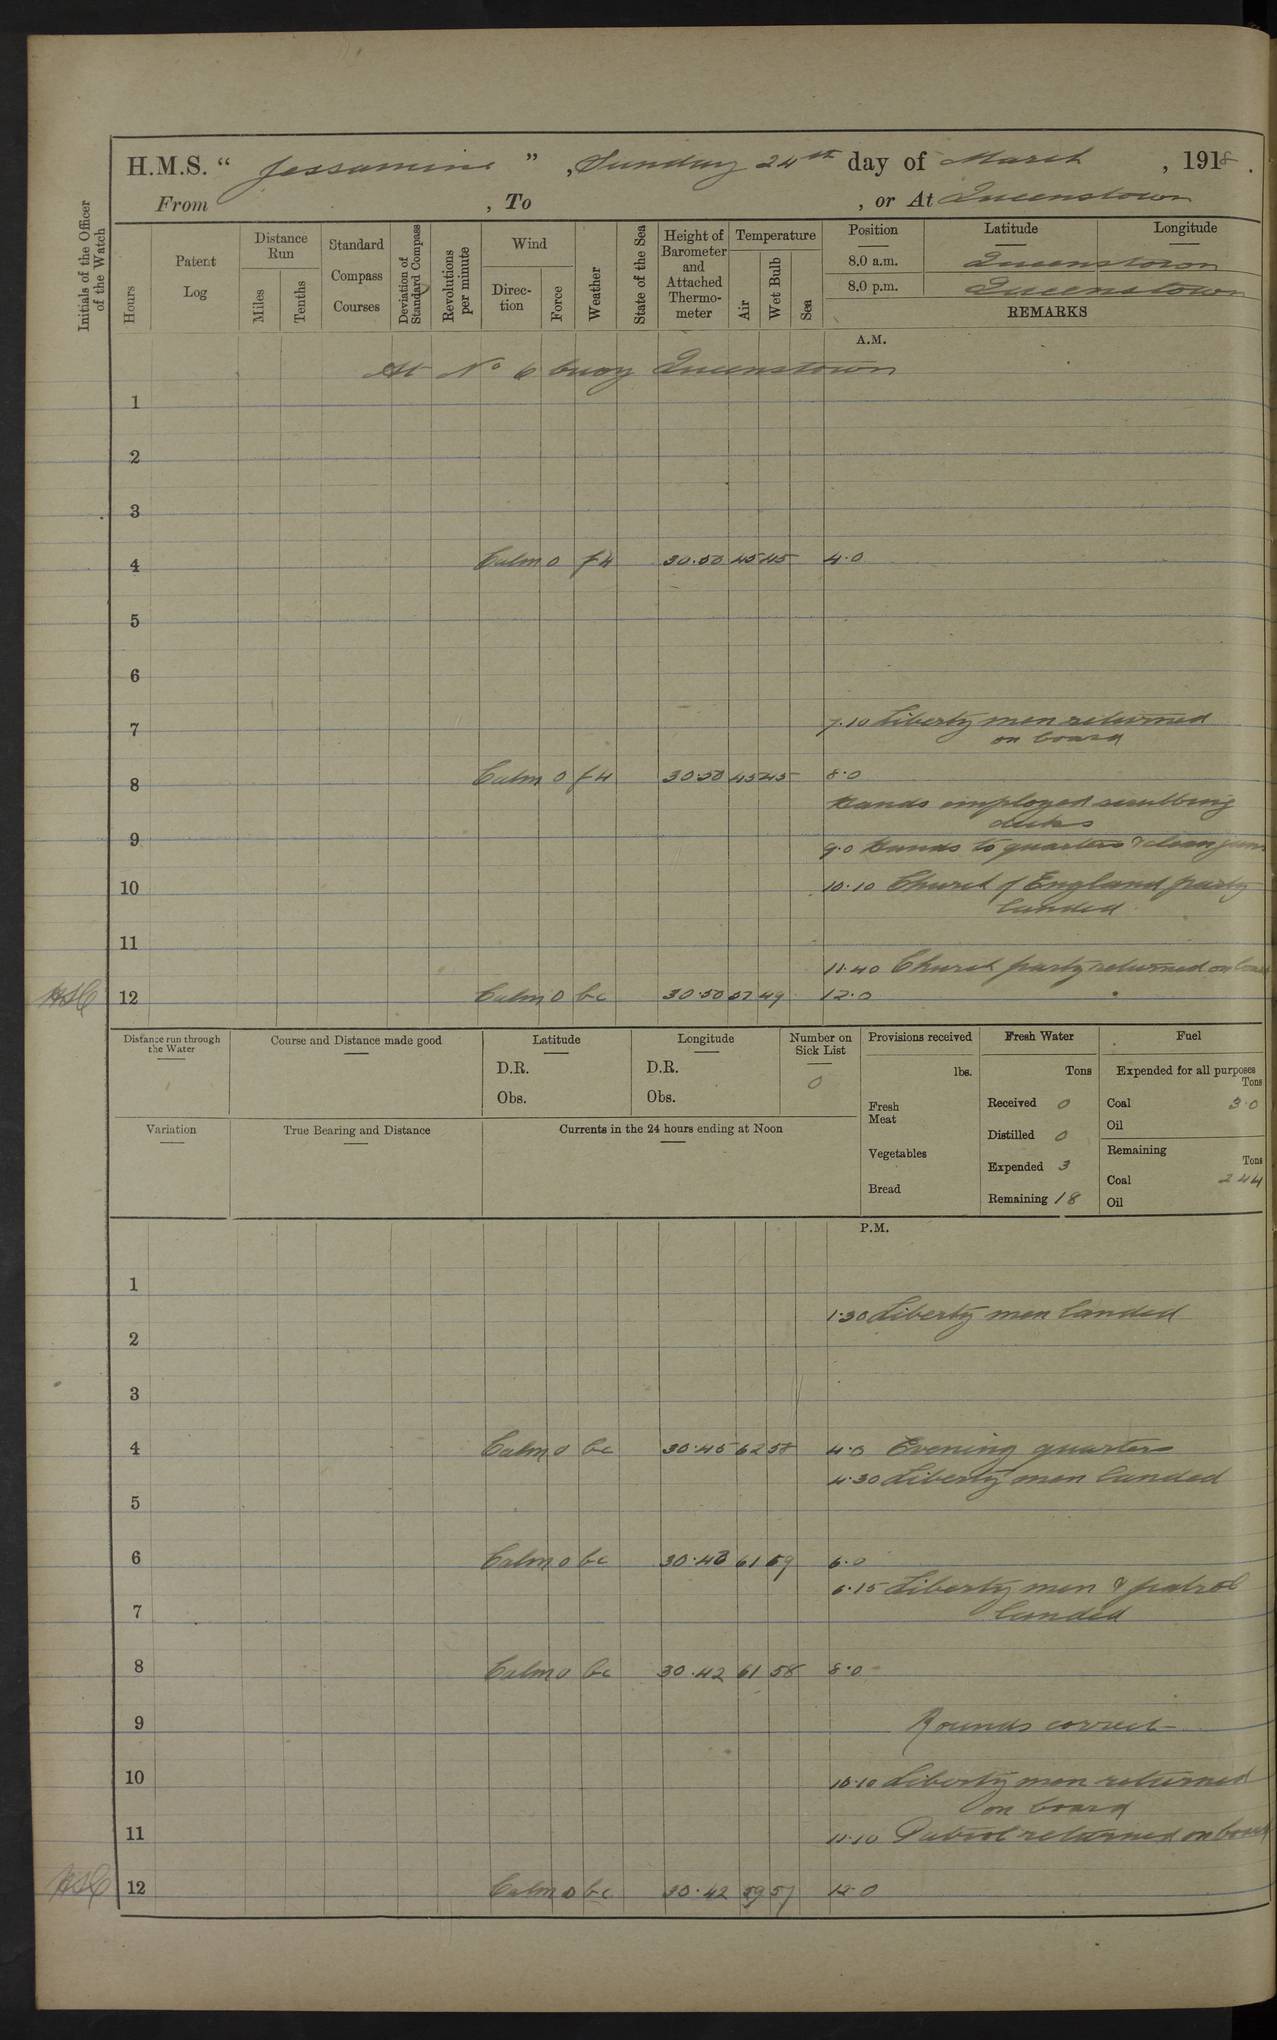 H.M.S. “ Jessamine ” , Sunday 24th day of March , 1918 .
From , To , or At Queenstown
Initials of the Officer of the Watch
Hours
Patent Log
Distance Run
Miles
Tenths
Standard Compass Courses
Deviation of Standard Compass
Revolutions per minute
Wind
Direc-tion
Force
Weather
State of the Sea
Height of Barometer and Attached Thermo-meter
Temperature
Air
Wet Bulb
Sea
Position Latitude Longitude
8.0 a.m. Queenstown
8.0 p.m. Queenstown
REMARKS
A.M.
At No 6 buoy Queenstown
1
2
3
4 Calm 0 f 4 30.50 45 45 4.0
5
6
7 7.10 Liberty men returned
on board
8 Calm 0 f 4 30.50 45 45 8.0
Hands employed scrubbing
decks
9 9.0 Hands to quarters & clean guns
10 10.10 Church of England party
landed
11
11.40 Church party returned on board
12 Calm 0 bc 30.50 57 49 12.0
Distance run through the Water
Course and Distance made good
Latitude
D.R.
Obs.
Longitude
D.R.
Obs.
Number on Sick List
0
Provisions received
lbs.
Fresh Meat
Vegetables
Bread
Fresh Water
Tons
Received 0
Distilled 0
Expended 3
Remaining 18
Fuel
Expended for all purposes
Tons
Coal 3.0
Oil
Remaining
Tons
Coal 244
Oil
Variation
True Bearing and Distance
Currents in the 24 hours ending at Noon
P.M.
1
1.30 Liberty men landed
2
3
4 Calm 0 bc 30.45 62 58 4.0 Evening quarters
4.30 Liberty men landed
5
6 Calm 0 bc 30.43 61 59 6.0
6.15 Liberty men & patrol
landed
7
8 Calm 0 bc 30.42 61 58 8.0
9 Rounds correct
10 10.10 Liberty men returned
on board
11 11.10 Patrol returned on board
12 Calm 0 bc 30.42 59 57 12.0